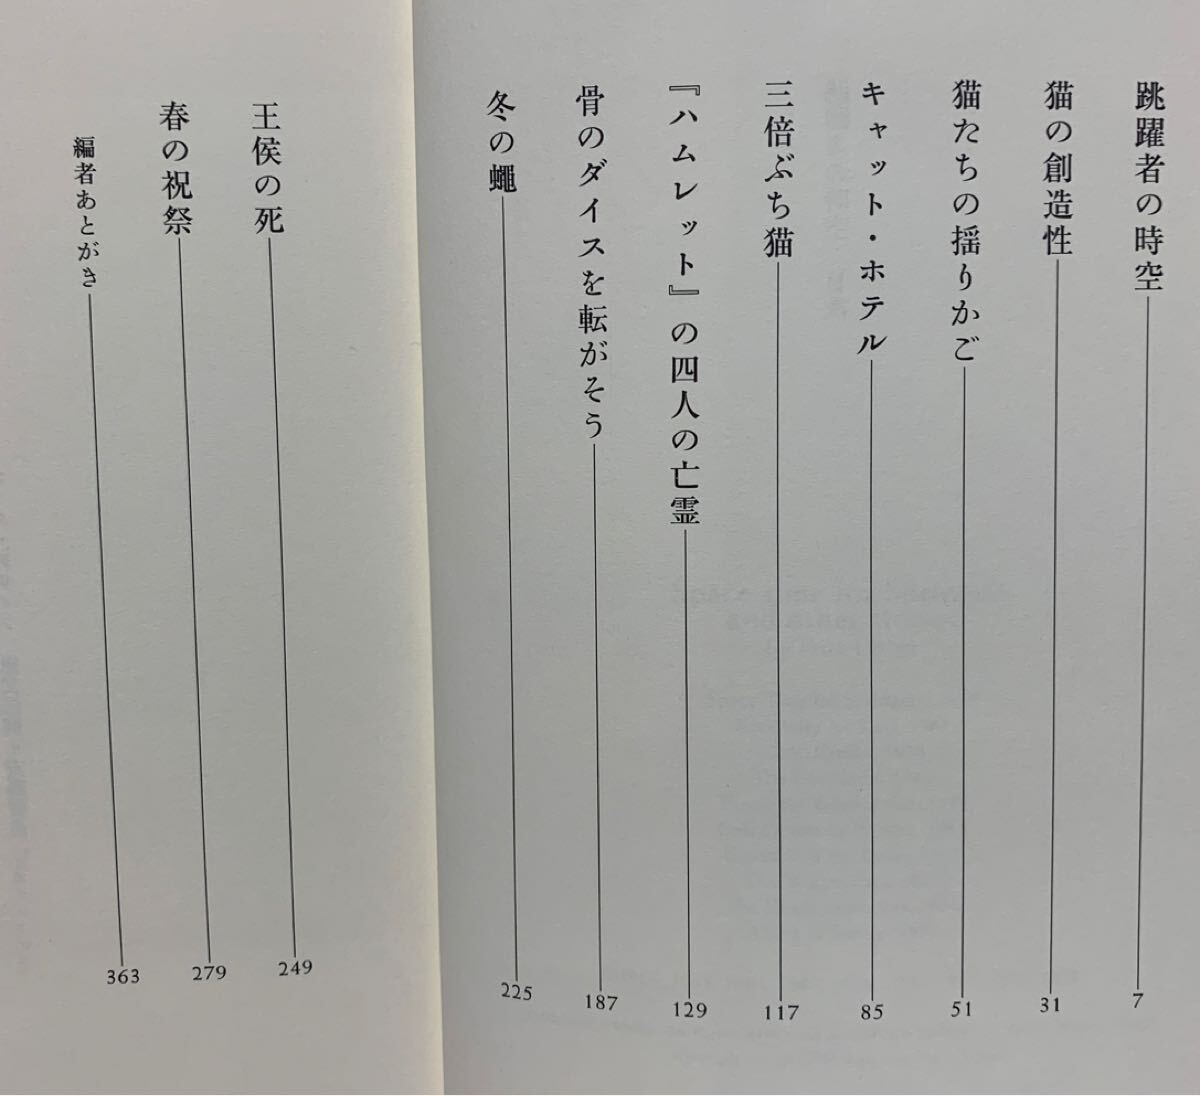 跳躍者の時空 7
猫の創造性 31
猫たちの揺りかご 51
キャット・ホテル 85
三倍ぶち猫 117
『ハムレット』の四人の亡霊 129
骨のダイスを転がそう 187
冬の蠅 225
王侯の死 249
春の祝祭 279
編者あとがき 363